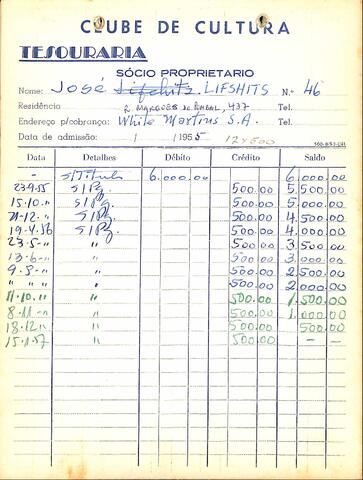 CLUBE DE CULTURA
TESOURARIA
SÓCIO PROPRIETARIO
Nome: José Lifchitz LIFSHITS N.º 46
Residência R. MARQUES DO POMBAL, 437 Tel.
Endereço p/cobrança: White Martins S.A. Tel.
Data de admissão: / / 1955 12x500
Data Detalhes Débito Crédito Saldo
- S/Titulo 6.000.00 6.000.00
23.9.55 S/Pg. 500.00 5.500.00
15.10.- " S/Pg. 500.00 5.000.00
21-12.- " S/Pg. 500.00 4.500.00
19.4.56 S/Pg. 500.00 4.000.00
23.5-" " 500.00 3.500.00
13.6-" " 500.00 3.000.00
9.8-" " 500.00 2.500.00
" " " " 500.00 2.000.00
11.10." " 500.00 1.500.00
8.11-" " 500.00 1.000.00
18.12" " 500.00 500.00
15.1.57 " 500.00 - -